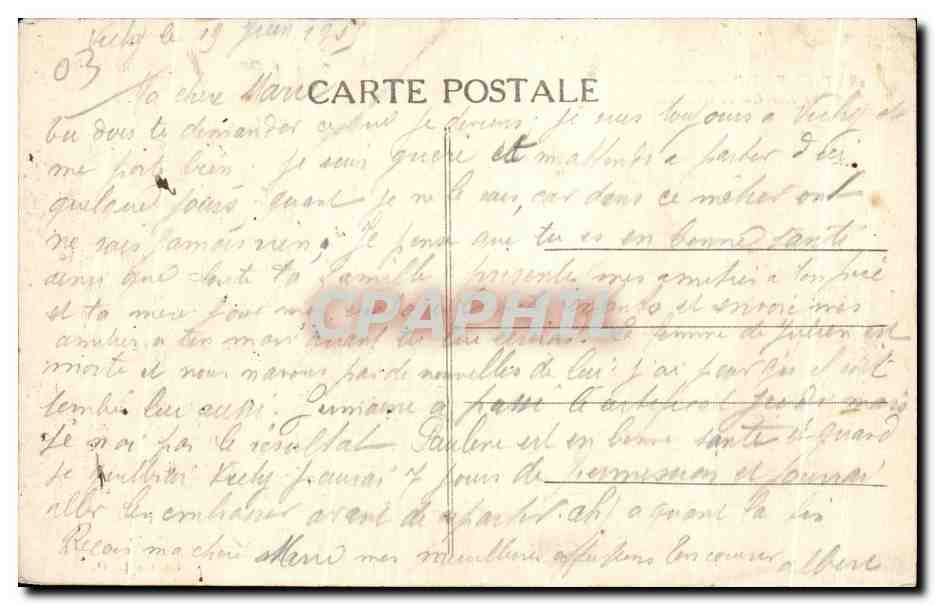 Vichy le 19 juin 19
03
Ma chère Marie
CARTE POSTALE
tu dois te demander ce que je deviens. Je suis toujours a Vichy et
me porte bien je suis guéri et m'attends a partir d'ici
quelque jours, quant je ne le sais, car dans ce métier ont
ne sais jamais rien, Je pense que tu es en bonne santé
ainsi que toute ta famille présente mes amitiés a ton père
et ta mère pour moi et envoie mes
amitiés a ton mari quand tu lui écriras. La femme de Julien est
morte et nous navons pas de nouvelles de lui j'ai peur qu'il soit
tombé lui aussi. Germaine a passé le certificat jeudi mais
je n'ai pas le résultat. Paulene est en bonne santé et quand
je quitterai Vichy j'aurai 7 jours de permission et pourrai
aller les embrasser avant de repartir. ah! a quant la fin
Reçois ma chère Marie mes meilleures affections Ton cousin Albert
CPAPHIL